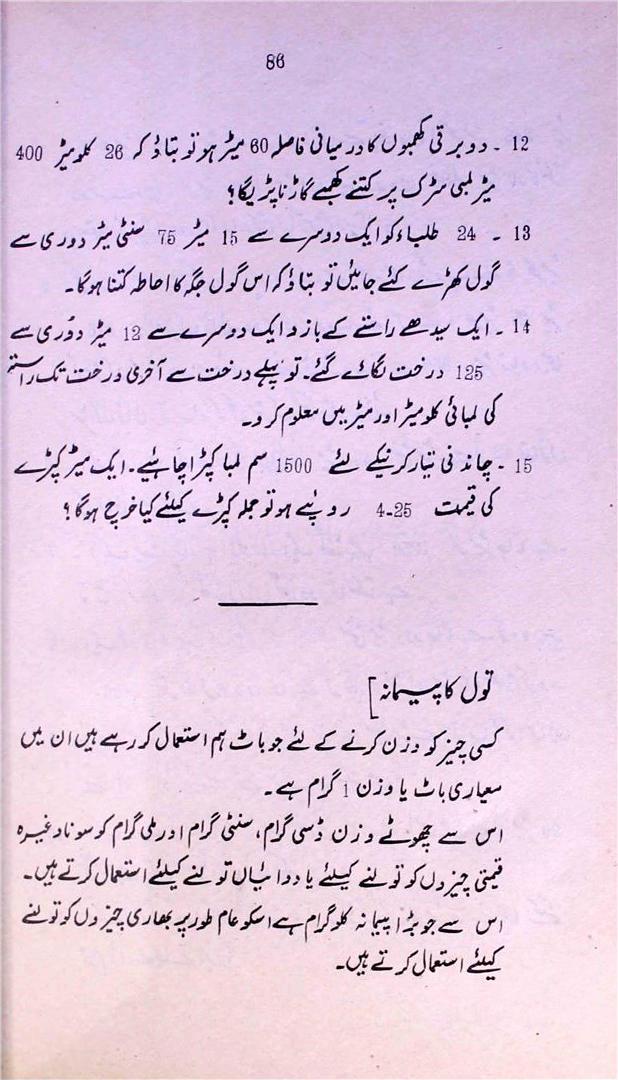 86
12 ۔ دو برقی کھمبوں کا درمیانی فاصلہ 60 میٹر ہو تو بتاؤ کہ 26 کلومیٹر 400
میٹر لمبی سڑک پر کتنے کھمبے گاڑنا پڑیگا؟
13 ۔ 24 طلباء کو ایک دوسرے سے 15 میٹر 75 سنٹی میٹر دوری سے
گول کھڑے کئے جائیں تو بتاؤ کہ اس گول جگہ کا احاطہ کتنا ہوگا۔
14 ۔ ایک سیدھے راستے کے بازو ایک دوسرے سے 12 میٹر دوری سے
125 درخت لگائے گئے۔ تو پہلے درخت سے آخری درخت تک راستے
کی لمبائی کلومیٹر اور میٹر میں معلوم کرو۔
15 ۔ چاندنی تیار کرنیکے لئے 1500 سم لمبا کپڑا چاہئیے۔ ایک میٹر کپڑے
کی قیمت 4-25 روپئیے ہو تو جملہ کپڑے کیلئے کیا خرچ ہوگا؟
تول کا پیمانہ]
کسی چیز کو وزن کرنے کے لئے جو باٹ ہم استعمال کر رہے ہیں ان میں
معیاری باٹ یا وزن 1 گرام ہے۔
اس سے چھوٹے وزن ڈسی گرام، سنٹی گرام اور ملی گرام کو سونا وغیرہ
قیمتی چیزوں کو تولنے کیلئے یا دوائیاں تولنے کیلئے استعمال کرتے ہیں۔
اس سے جو بڑا پیمانہ کلوگرام ہے اسکو عام طور پر بھاری چیزوں کو تولنے
کیلئے استعمال کرتے ہیں۔